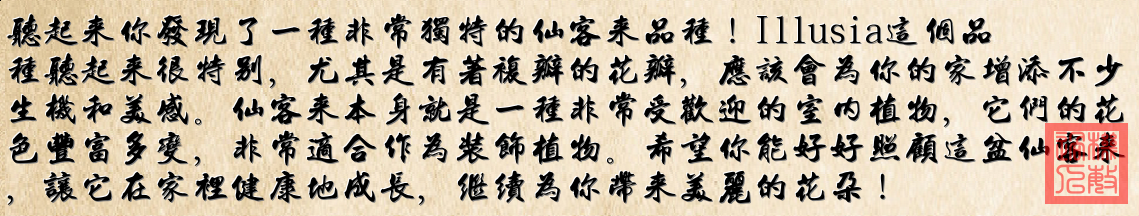 聽起來你發現了一種非常獨特的仙客來品種！Illusia這個品
種聽起來很特别，尤其是有著複瓣的花瓣，應該會為你的家增添不少
生機和美感。仙客來本身就是一種非常受歡迎的室内植物，它們的花
色豐富多變，非常適合作為裝飾植物。希望你能好好照顧這盆仙客来
，讓它在家裡健康地成長，繼續為你帶来美麗的花朵！